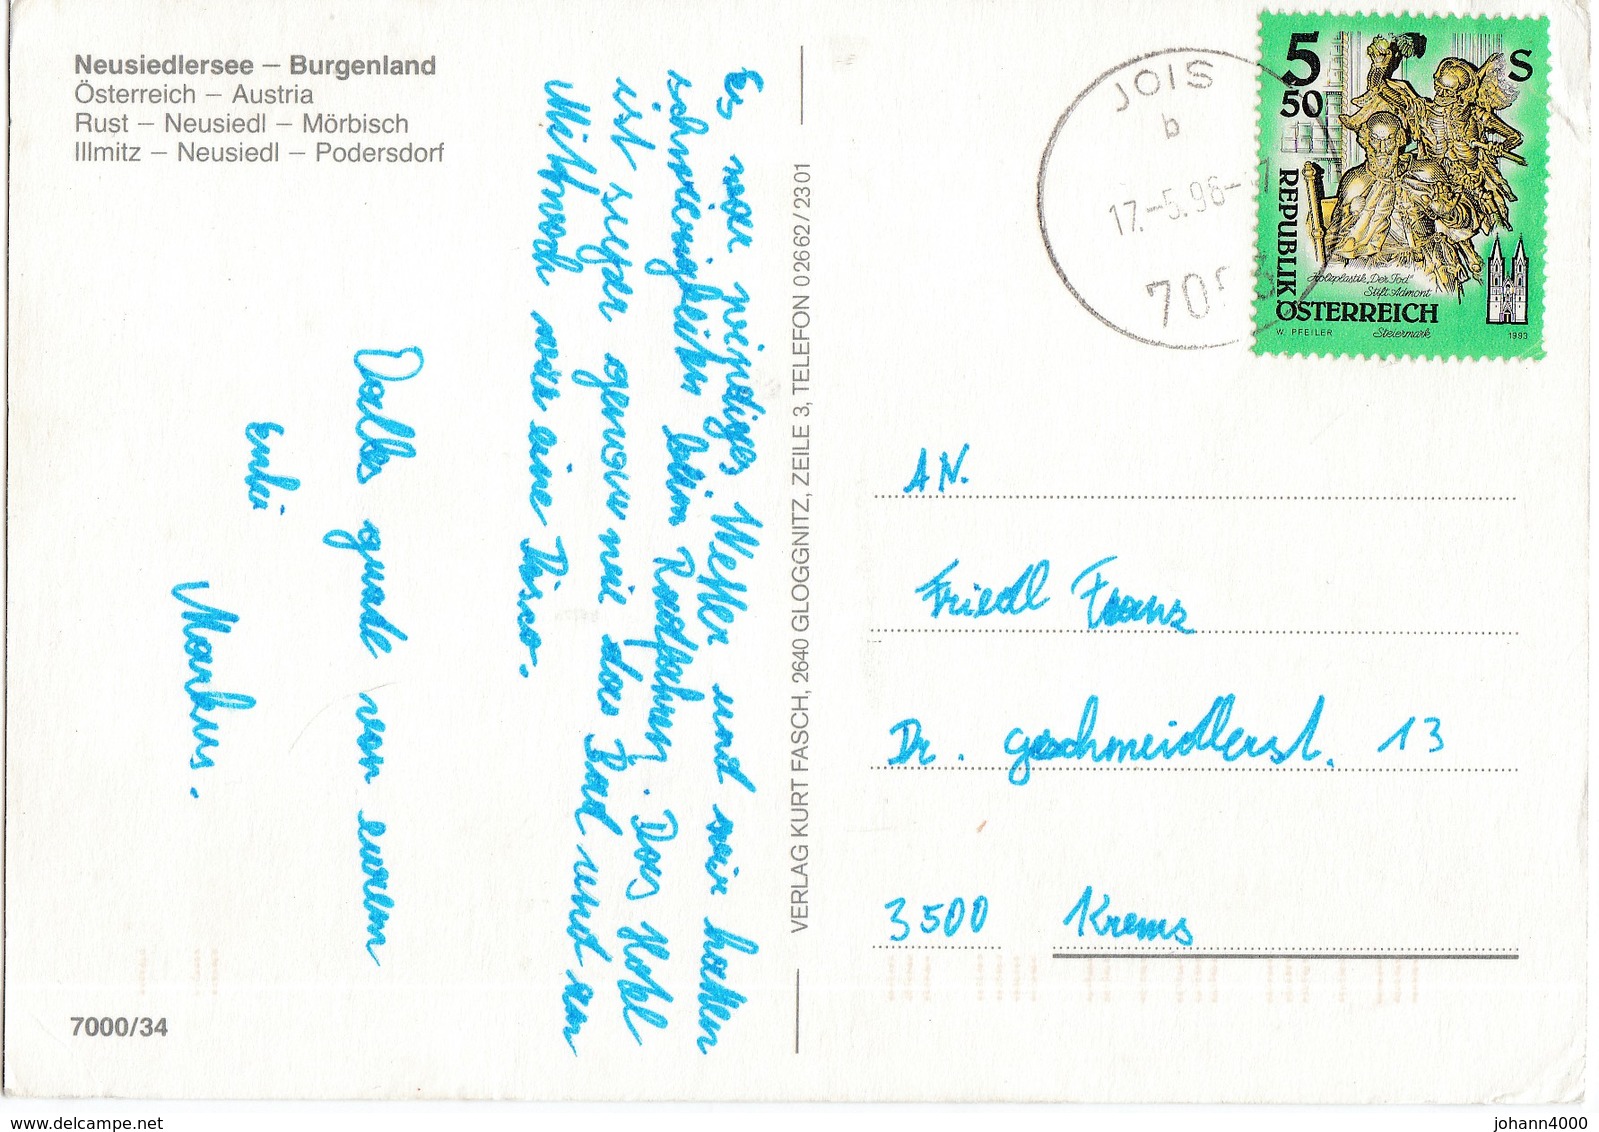 Neusiedlersee – Burgenland
Österreich – Austria
Rust – Neusiedl – Mörbisch
Illmitz – Neusiedl – Podersdorf
Es war windiges Wetter und wir hatten
schwierigkeiten beim Radfahren. Das Hotel
ist super genau wie das Bad und am
Mittwoch war eine Disco.
Dalles gute von eurem
Enkel
Markus.
7000/34
VERLAG KURT FASCH, 2640 GLOGGNITZ, ZEILE 3, TELEFON 0 26 62 / 23 01
JOIS
b
17.-5.96-
70
5 S
50
REPUBLIK
Holzplastik „Der Tod"
Stift Admont
ÖSTERREICH
W. PFEILER Steiermark 1993
AN.
Friedl Franz
Dr. geschmeidlerst. 13
3500 Krems
www.delcampe.net
johann4000